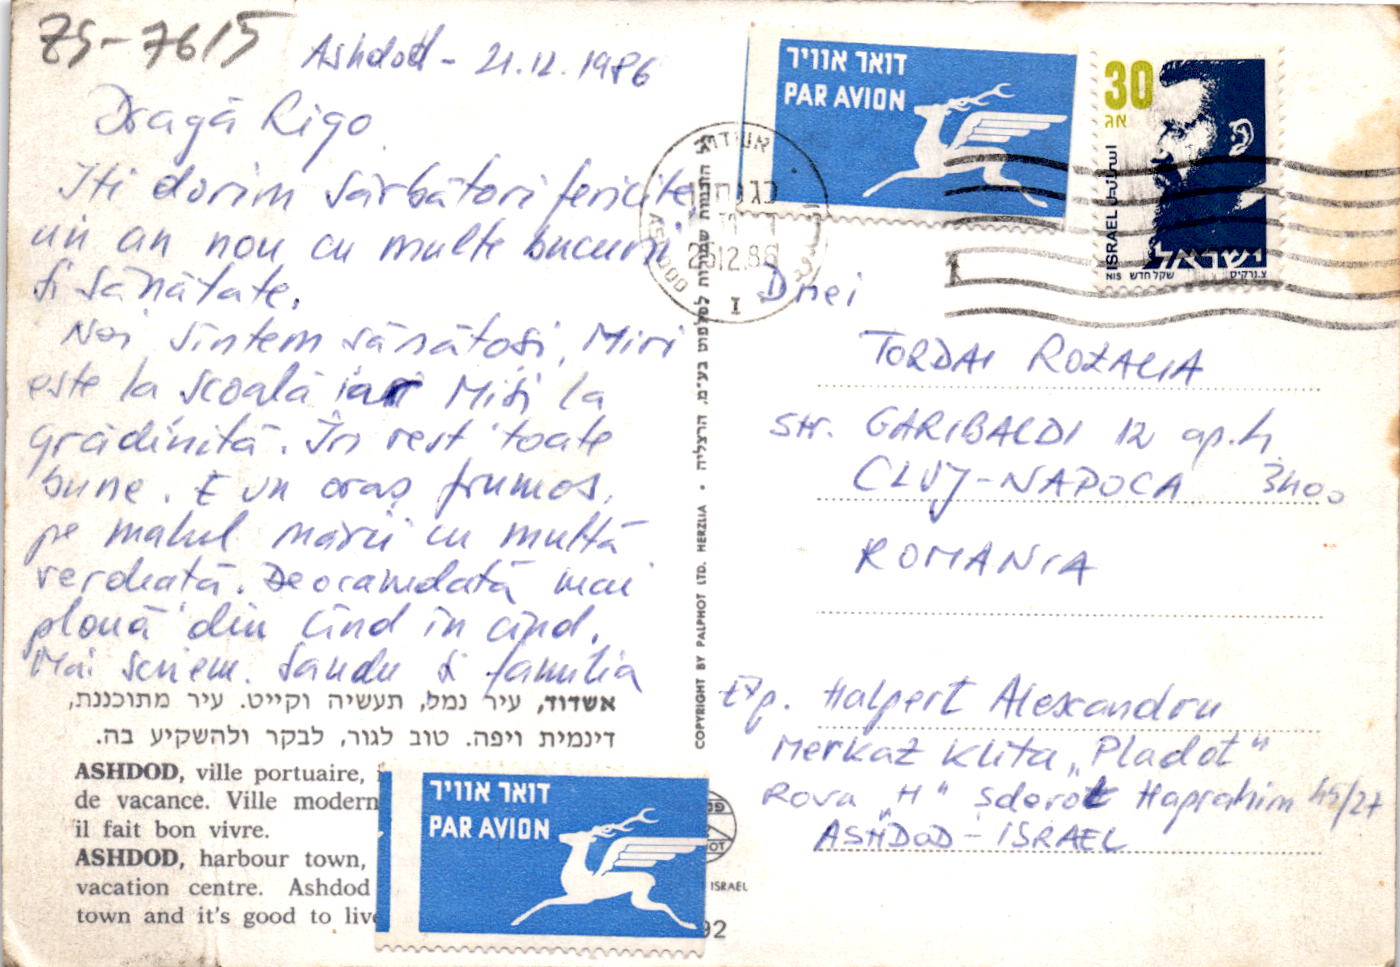 ZS-7615
Ashdod - 21.12.1986
Dragă Rigo
Iti dorim sărbători fericite,
un an nou cu multe bucurii
si sănătate.
Noi sîntem sănătosi, Miri
este la scoală iar Misi la
grădinită. În rest toate
bune. E un oras frumos,
pe malul mării cu multă
verdeată. Deocamdată mai
plouă din cînd în cînd.
Mai scriem. Sandu si familia
אשדוד, עיר נמל, תעשיה וקייט. עיר מתוכננת,
דינמית ויפה. טוב לגור, לבקר ולהשקיע בה.
ASHDOD, ville portuaire,
de vacance. Ville modern
il fait bon vivre.
ASHDOD, harbour town,
vacation centre. Ashdod
town and it's good to live
דואר אוויר
PAR AVION
ISRAEL
92
COPYRIGHT BY PALPHOT LTD. HERZLIA • בע"מ, הרצליה
דואר אוויר
PAR AVION
30
אג
ISRAEL اسرائيل
ישראל
NIS שקל חדש
צ. נרקיס
אשדוד
ASHDOD
12.86
I
Dnei
TORDAI ROZALIA
str. GARIBALDI 12 ap.4
CLUJ-NAPOCA 3400
ROMANIA
Exp. Halpert Alexandru
Merkaz Klita „Pladot"
Rova „H" Sderot Haprahim 45/27
ASHDOD - ISRAEL